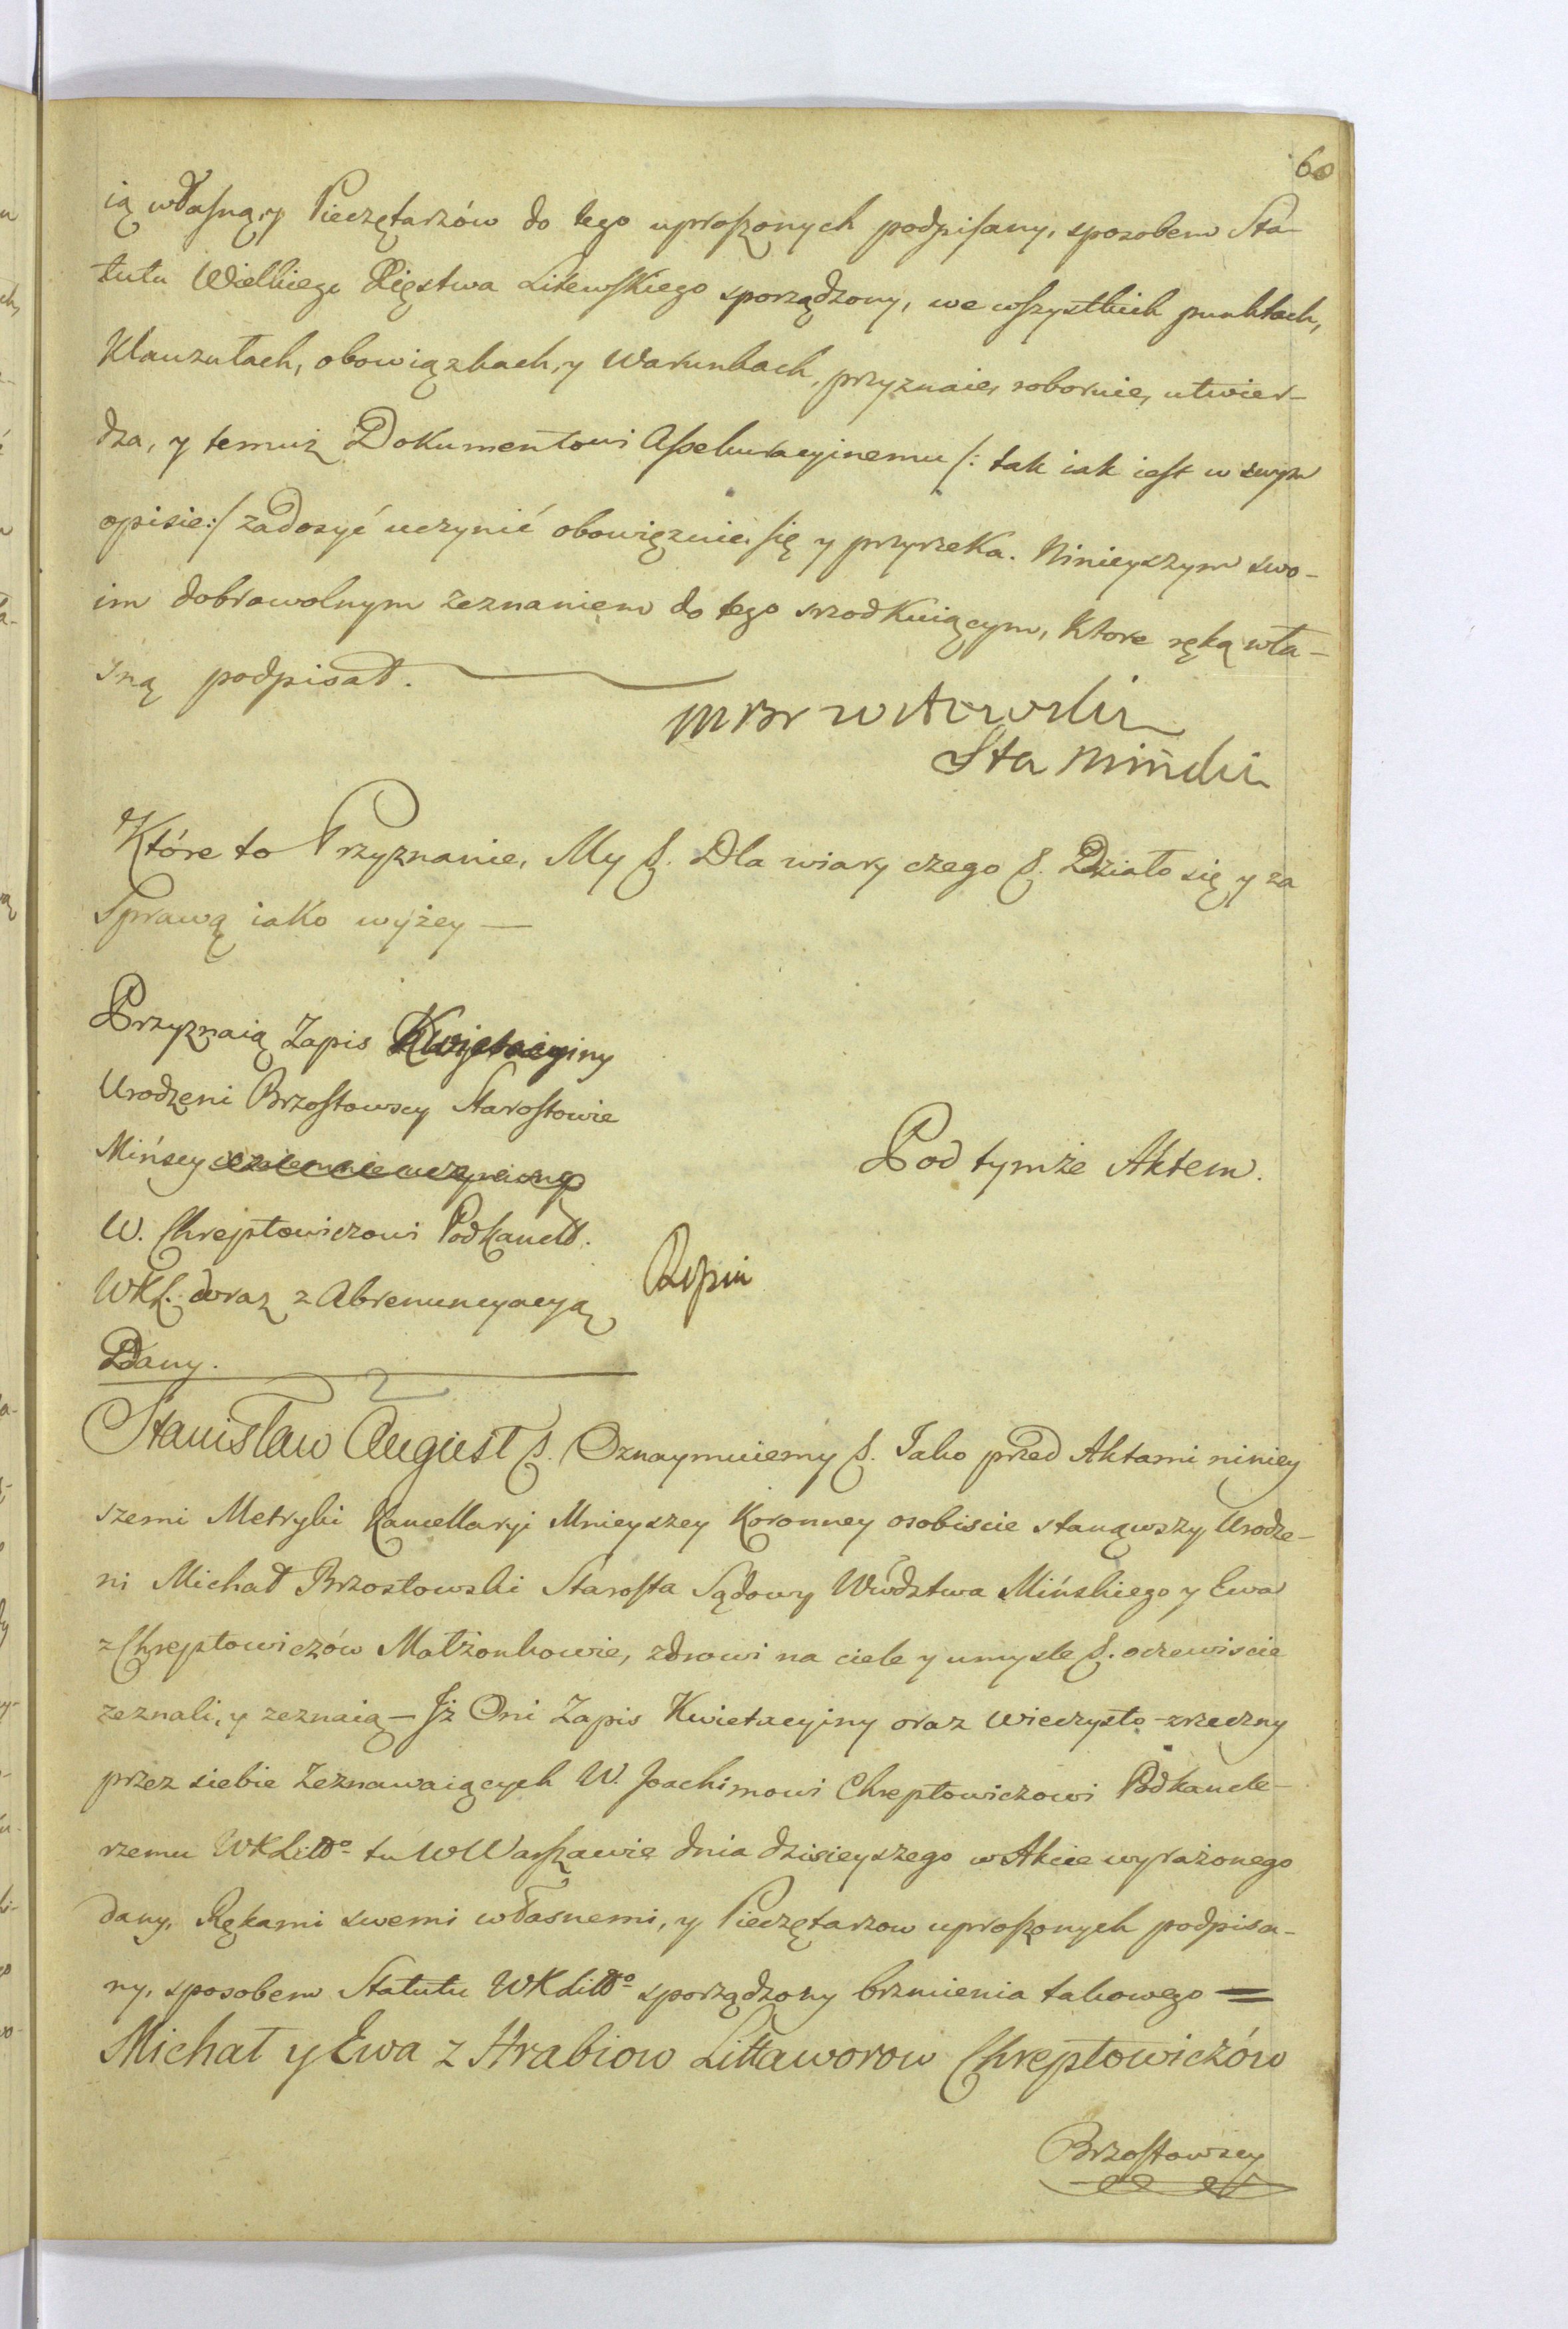 60
ią własną, y Pieczętarzów do tego uproszonych podpisany, sposobem Sta-
tutu Wielkiego Xięstwa Litewskiego sporządzony, we wszystkich punktach,
Klauzułach, obowiązkach, y Warunkach, przyznaie, roboruie, utwier-
dza, y temuż Dokumentowi Assekuracyinemu /: tak iak iest w swym
opisie :/ zadosyć uczynić obowięzuie się y przyrzeka. Ninieyszym swo-
im dobrowolnym zeznaniem do tego srzodkuiącym, Ktore ręką wła-
sną podpisał.
MBrzostowski
Sta Miński
Które to Przyznanie, My &. Dla wiary czego &. Działo się y za
Sprawą iako wyżey —
Przyznaią Zapis Kwietacyiny
Urodzeni Brzostowscy Starostowie
Mińscy
W. Chreptowiczowi Podkancl.
WXL. oraz z Abrenuncyacyą
Dany.
Pod tymże Aktem.
Stanisław August &. Oznaymuiemy &. Iako przed Aktami niniey
szemi Metryki Kancellaryi Mnieyszey Koronney osobiscie stanąwszy Urodze-
ni Michał Brzostowski Starosta Sądowy Wwdztwa Mińskiego y Ewa
z Chreptowiczów Małżonkowie, zdrowi na ciele y umysle &. oczewiscie
zeznali, y zeznaią — Iż Oni Zapis Kwietacyiny oraz Wieczysto-zrzeczny
przez siebie Zeznawaiących W. Joachimowi Chreptowiczowi Podkancle-
rzemu WXLittº tu w Warszawie dnia dzisieyszego w Akcie wyrażonego
dany, Rękami swemi własnemi, y Pieczętarzow uproszonych podpisa-
ny, sposobem Statutu WXLittº sporządzony brzmienia takowego =
Michał y Ewa z Hrabiow Littaworow Chreptowiczów
Brzostowscy